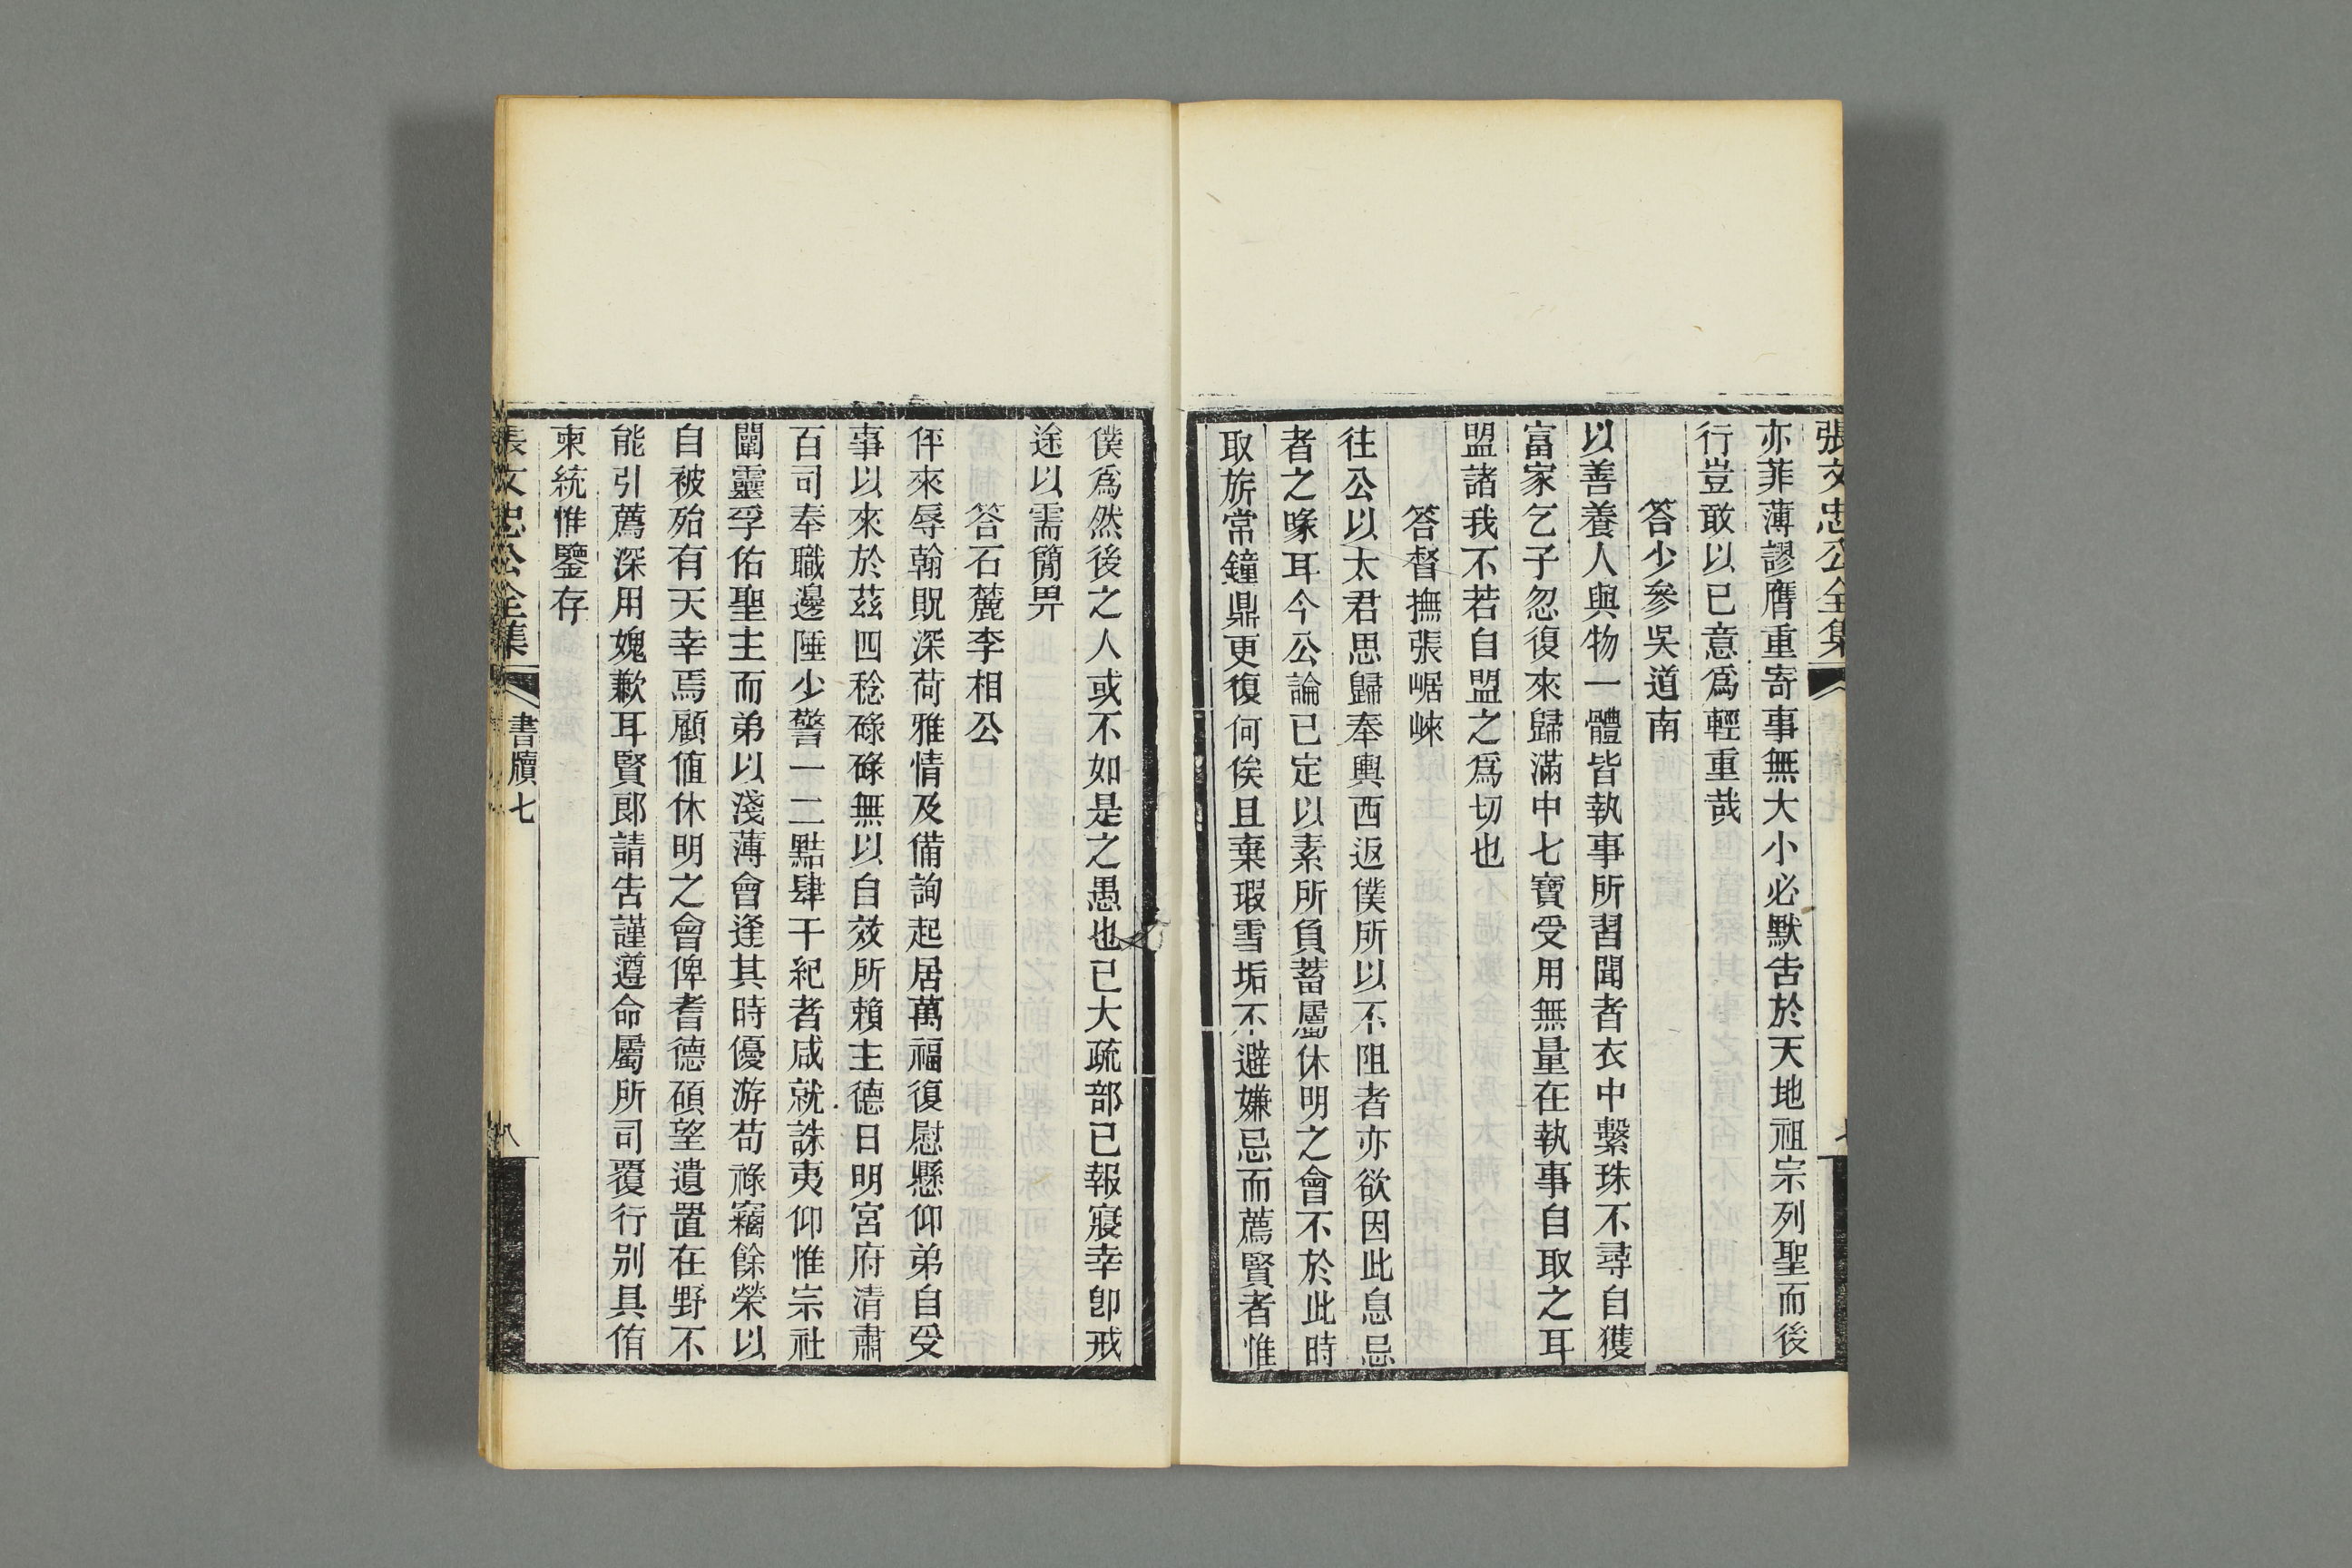 張文忠公全集
亦菲薄謬膺重寄事無大小必默告於天地祖宗列聖而後
行豈敢以已意爲輕重哉
答少參吳道南
以善養人與物一體皆執事所習聞者衣中繫珠不尋自獲
富家乞子忽復來歸滿中七寶受用無量在執事自取之耳
盟諸我不若自盟之爲切也
答督撫張崌崍
往公以太君思歸奉輿西返僕所以不阻者亦欲因此息忌
者之喙耳今公論已定以素所負蓄屬休明之會不於此時
取旂常鐘鼎更復何俟且棄瑕雪垢不避嫌忌而薦賢者惟
僕爲然後之人或不如是之愚也已大疏部已報寢幸卽戒
途以需簡畀
答石麓李相公
伻來辱翰貺深荷雅情及備詢起居萬福復慰懸仰弟自受
事以來於茲四稔碌碌無以自效所賴主德日明宮府清肅
百司奉職邊陲少警一二點肆干紀者咸就誅夷仰惟宗社
闡靈孚佑聖主而弟以淺薄會逢其時優游苟祿竊餘榮以
自被殆有天幸焉顧值休明之會俾耆德碩望遺置在野不
能引薦深用媿歉耳賢郎請告謹遵命屬所司覆行别具侑
柬統惟鑒存
張文忠公全集
書牘七
八